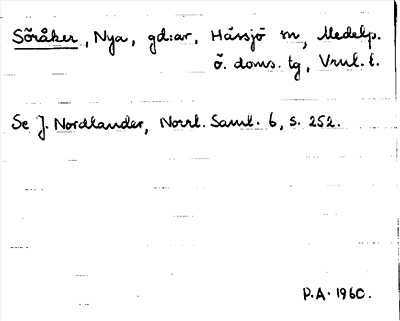 Söråker, Nya, gd:ar, Hässjö sn, Medelp.
ö. doms. tg, Vnul. l.
Se J. Nordlander, Norrl. Saml. 6, s. 252.
P.A. 1960.